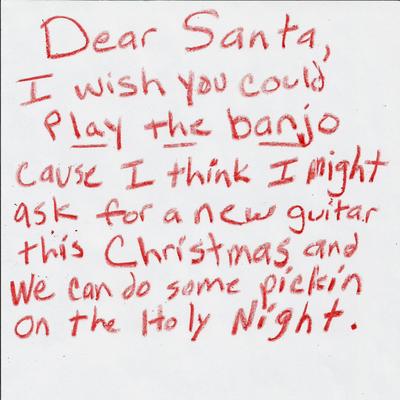 Dear Santa,
I wish you could
Play the banjo
cause I think I might
ask for a new guitar
this Christmas and
We can do some pickin
On the Holy Night.